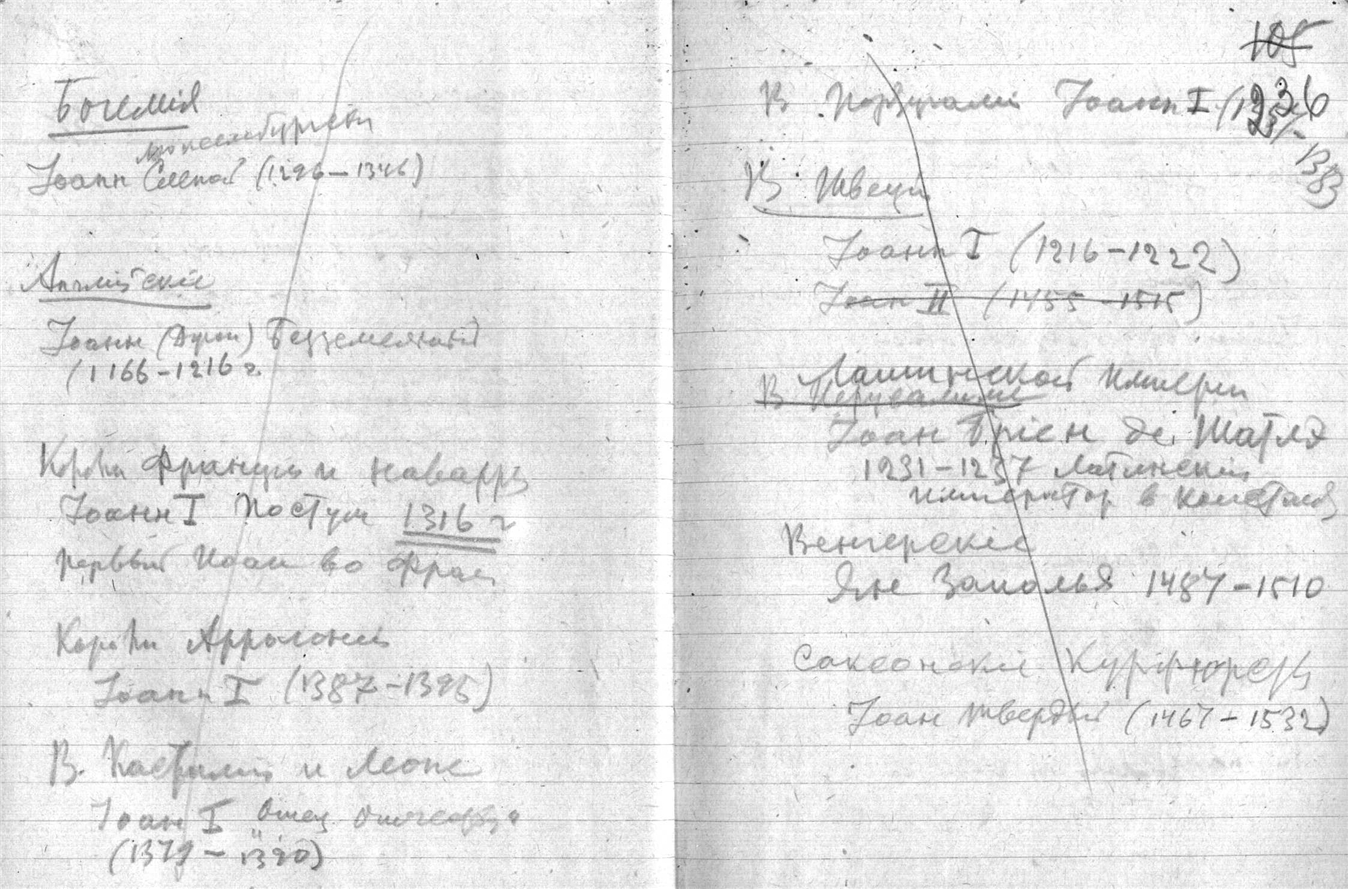 Богемія
люксембургскій
Іоанн Слепой (1296–1346)
Англійскіе
Іоанн (Джон) Безземельный
(1166–1216 г.
Короли Франции и Наварры
Іоанн I Постум 1316 г
первый Иоан во Фран
Короли Аррагоніи
Іоанн I (1387–1395)
В. Кастилии и Леоне
Іоан I отец отечества
(1379–1390)
105
236
В Португаліи Іоанн I (13
1383
В Швеции
Іоанн I (1216–1222)
Іоан II (1455–1515)
Латинской империи
В Иерусалиме
Іоан Бріен де Шатле
1231–1237 Латинскій
император в Констан
Венгерскіе
Ян Заполья 1487–1510
Саксонскіе Курфюрсты
Іоан твердый (1467–1532)